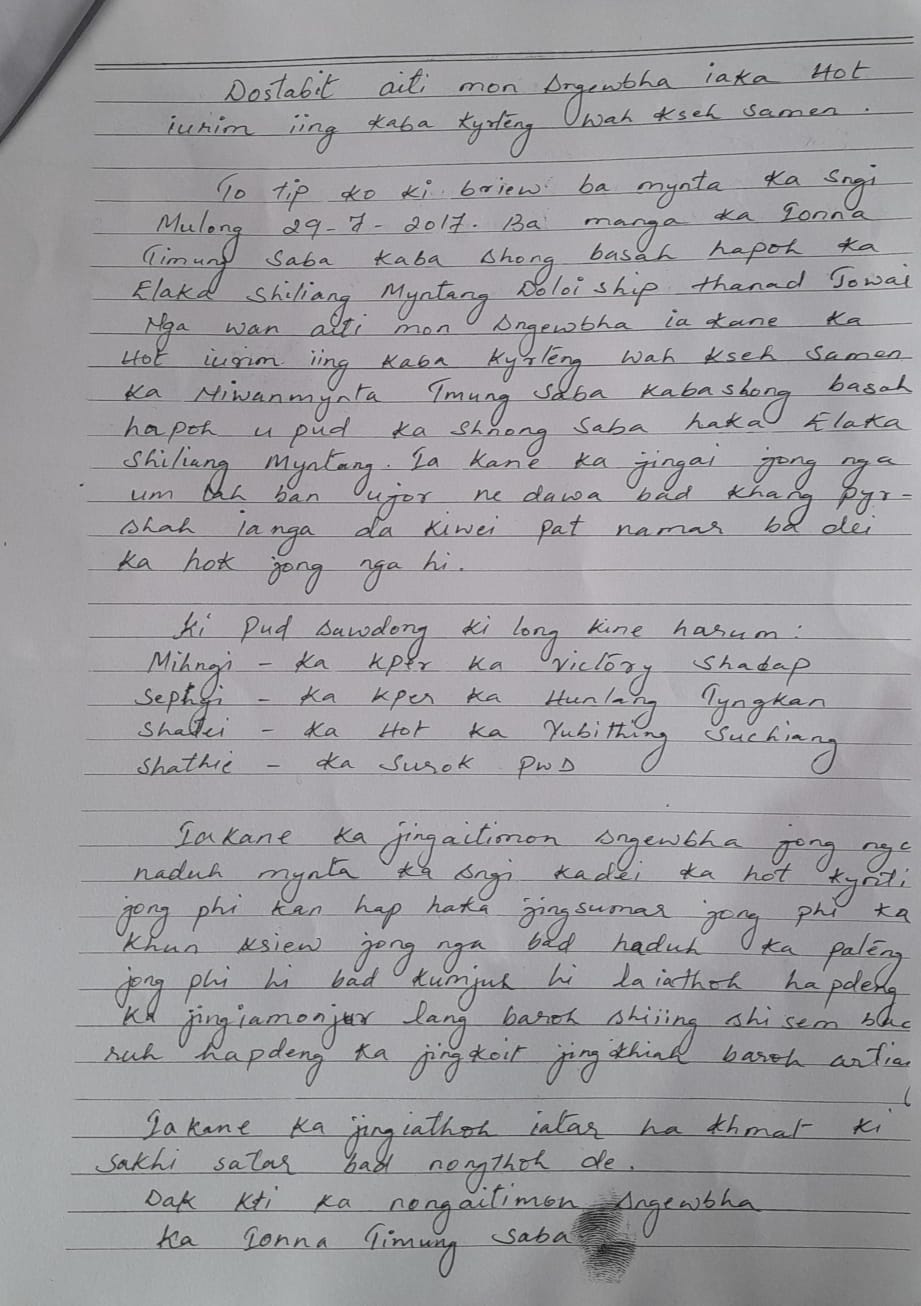 Dostabit aiti mon sngewbha iaka Hok
iurim iing kaba kyrteng Wah kseh Samen.
To tip ko ki briew ba mynta ka Sngi
Mulong 29-7-2017. Ba manga ka Ionna
Timung Saba kaba shong basah hapoh ka
Elaka Shiliang Myntang Doloiship thanad Jowai
Nga wan aiti mon sngewbha ia kane ka
Hok iurim iing kaba kyrteng wah kseh Samen
ka Niwanmynta Tmung Saba kaba shong basah
hapoh u pud ka shnong Saba haka Elaka
Shiliang Myntang. Ia kane ka jingai jong nga
um lah ban ujor ne dawa bad khang pyr-
shah ianga da kiwei pat namar ba dei
ka hok jong nga hi.
Ki Pud sawdong ki long kine harum:
Mihngi - ka kper ka Victory Shadap
Sepngi - ka kper ka Hunlang Tyngkan
Shatei - ka Hok ka Yubithing Suchiang
Shathie - ka Surok PWD
Iakane ka jingaitimon sngewbha jong nga
naduh mynta ka sngi kadei ka hok kynti
jong phi kan hap haka jingsumar jong phi ka
khun ksiew jong nga bad haduh ka pateng
jong phi hi bad kumjuh hi la iathoh hapdeng
ka jingiamonjur lang baroh shiiing shi sem bad
ruh hapdeng ka jingkoit jingkhiah baroh artia
Iakane ka jingiathoh iatar ha khmat ki
sakhi satar bad nongthoh de.
Dak kti ka nongaitimon sngewbha
ka Ionna Timung Saba